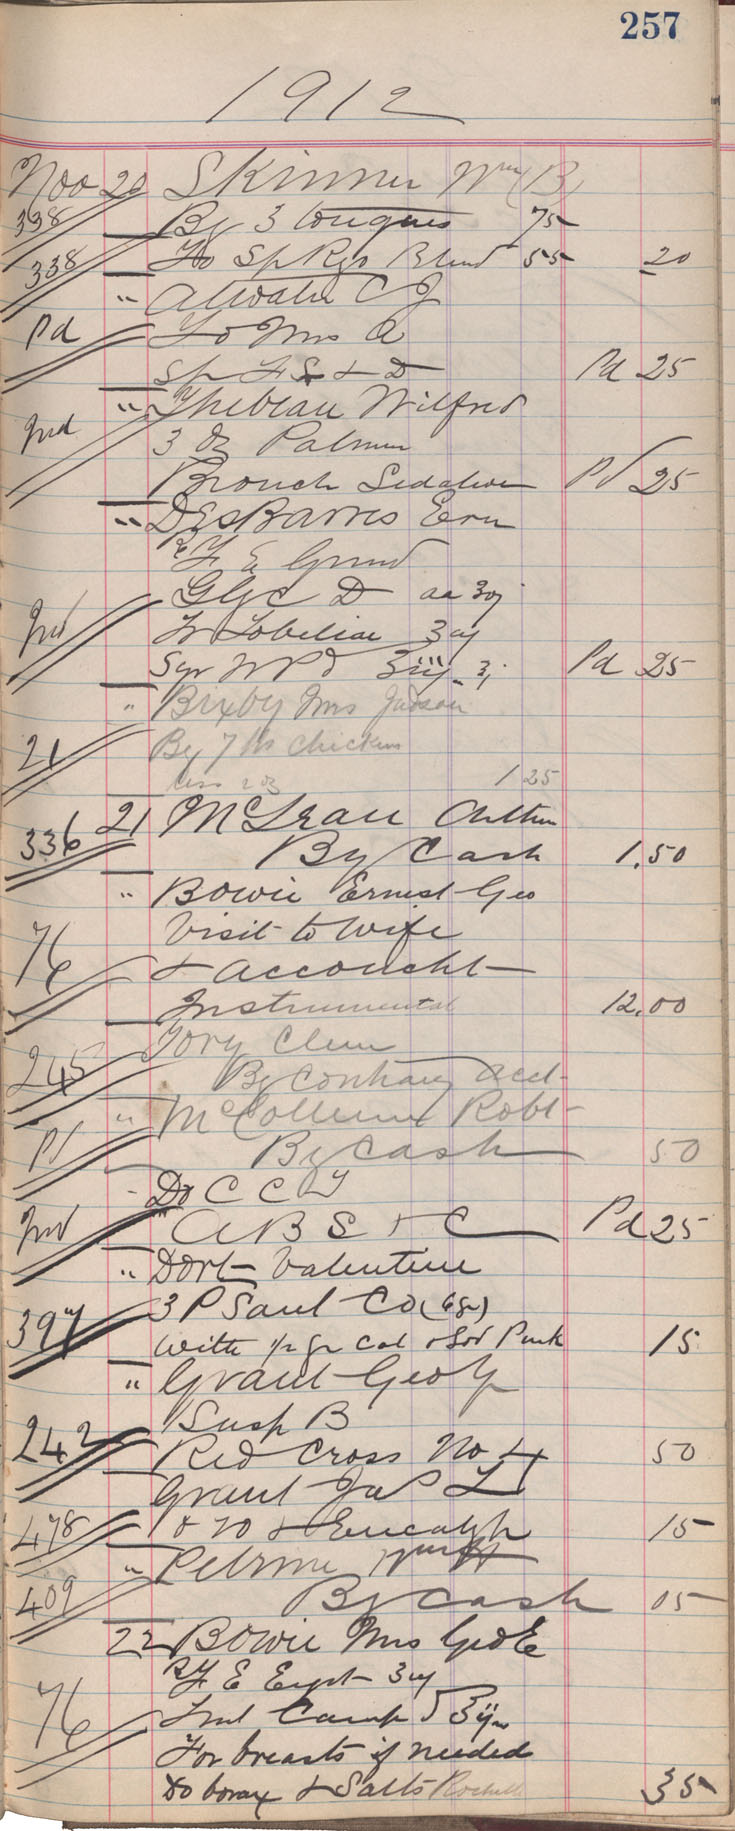 257
1912
Nov 20 Skinner Wm (B)
338 By 3 tongues 75
338 To Sp Rye Blend 55 20
" Atwater C J
Pd To Mrs A
Sp F S + D Pd 25
" Thebeau Wilfred
3 Oz Palmer
Bronch Sedative Pd 25
" DesBarres Ern
Rx F E Grind
Glyc D aa ʒij
Tr Lobeliae ʒij
Syr W P Pd 25
" Bixby Mrs Judson
21 By 7 lb Chicken
less 2 oz 1 25
21 McLean Arthur
336 By Cash 1.50
" Bowie Ernest Geo
76 Visit to wife
+ accoucht
Instrumental 12.00
Tory Clem
245 By Contrary acct
" McCollum Robt
Pd By Cash 50
Do C C Y
A B S + C Pd 25
" Dort Valentine
397 3 P Sant Co (6 gr)
with 1/2 gr Cal + Sod Pink 15
" Grant Geo Y
Susp B
242 Red Cross No 4 50
Grant Jas L
478 1 + 70 + Eucalyp 15
" Petrie Wm H
409 By Cash 05
22 Bowie Mrs Geo E
Rx F E Ergot ʒij
76 Lint Camp
For breasts if needed
Do borax + Salts Rochelle 35